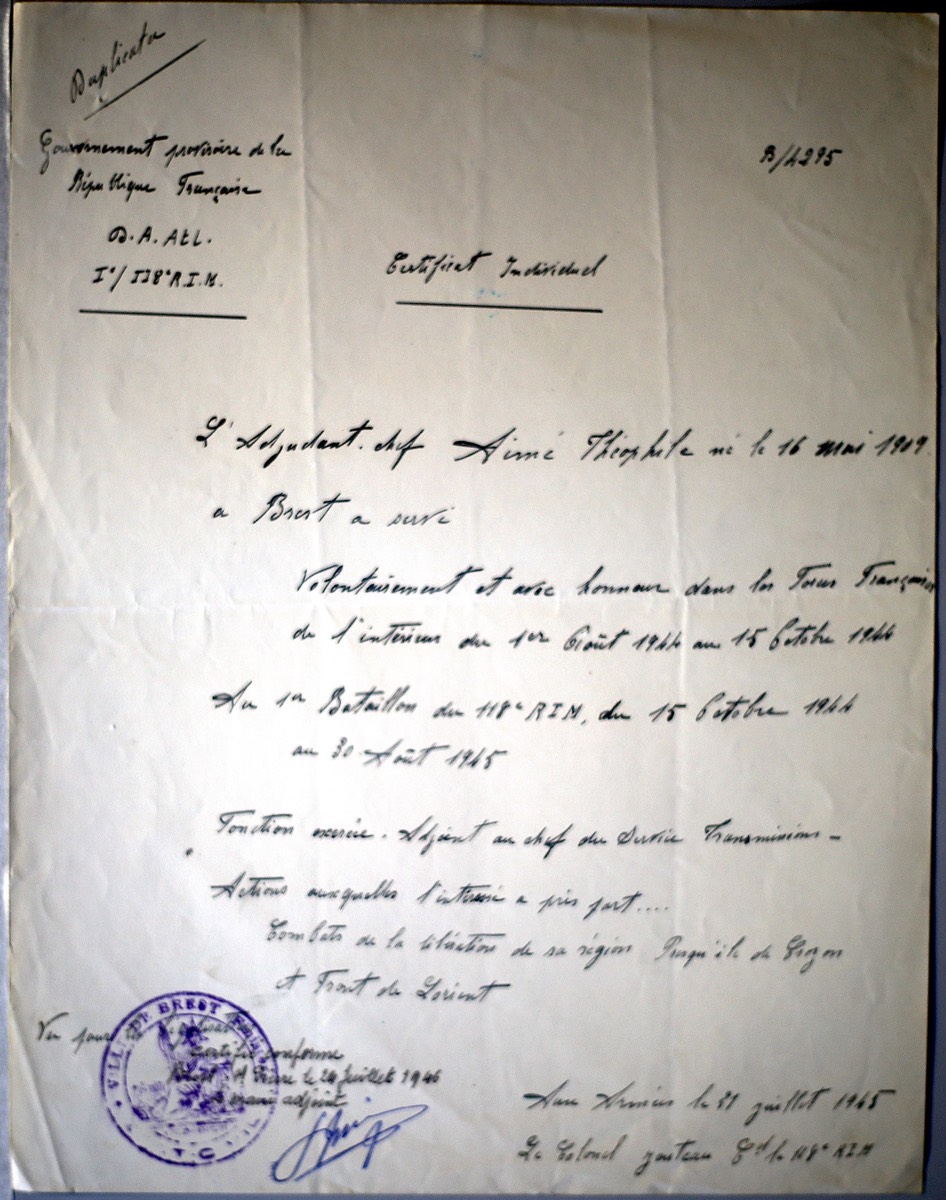 Duplicata
Gouvernement provisoire de la
République Française
D.A. Atl.
B/4295
I°/118e R.I.M.
Certificat Individuel
L'Adjudant-chef Aimé Théophile né le 16 mai 1909.
a Brest a servi
Volontairement et avec honneur dans les Forces Françaises
de l'intérieur du 1er Août 1944 au 15 Octobre 1944
Au 1er Bataillon du 118e RIM, du 15 Octobre 1944
au 30 Août 1945
Fonction exercée. Adjoint au chef du Service Transmissions -
Actions auxquelles l'intéressé a pris part....
Combats de la libération de sa région Presqu'île de Crozon
et Front de Lorient
Vu pour
certifié conforme
Brest le 24 Juillet 1946
adjoint
VILLE DE BREST
Aux Armées le 31 juillet 1945
Le Colonel Cdt le 118e RIM